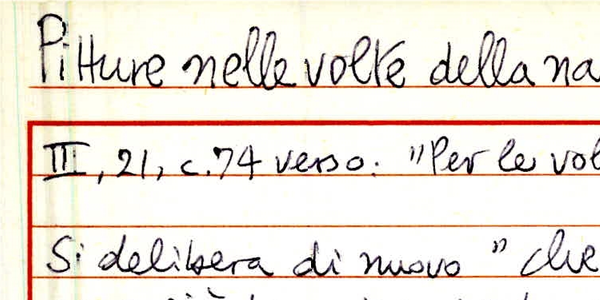 Pitture nelle volte della na
III, 21, c.74 verso: "Per le vol
Si delibera di nuovo " che